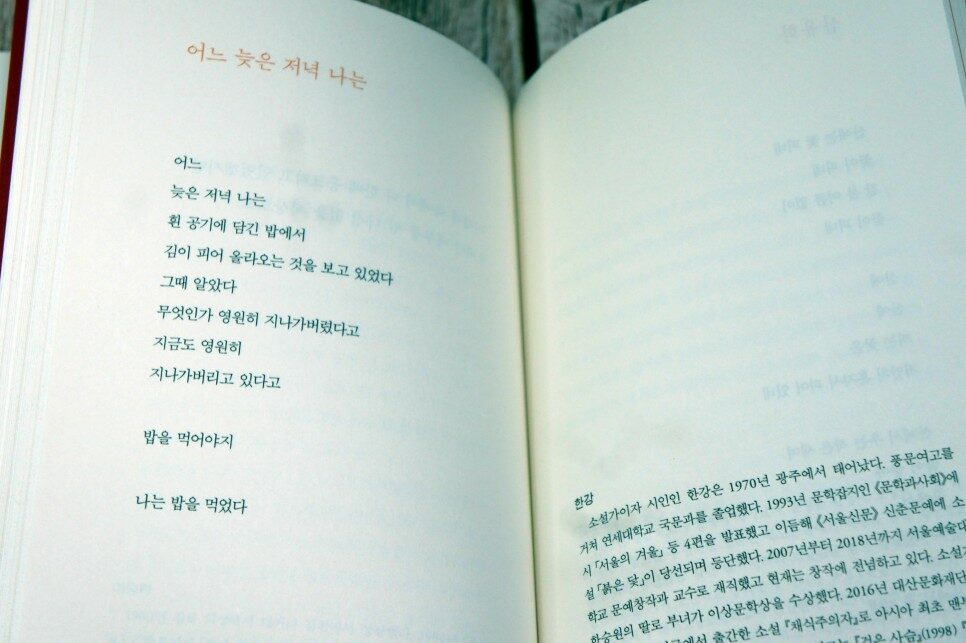 어느 늦은 저녁 나는
어느
늦은 저녁 나는
흰 공기에 담긴 밥에서
김이 피어 올라오는 것을 보고 있었다
그때 알았다
무엇인가 영원히 지나가버렸다고
지금도 영원히
지나가버리고 있다고
밥을 먹어야지
나는 밥을 먹었다
한강
소설가이자 시인인 한강은 1970년 광주에서 태어났다. 풍문여고를
거쳐 연세대학교 국문과를 졸업했다. 1993년 문학잡지인 《문학과사회》에
시 「서울의 겨울」 등 4편을 발표했고 이듬해 《서울신문》 신춘문예에 소
설 「붉은 닻」이 당선되며 등단했다. 2007년부터 2018년까지 서울예술대
학교 문예창작과 교수로 재직했고 현재는 창작에 전념하고 있다. 소설가
한승원의 딸로 부녀가 이상문학상을 수상했다. 2016년 대산문화재단
출간한 소설 『채식주의자』로 아시아 최초 맨부
(1998) 『